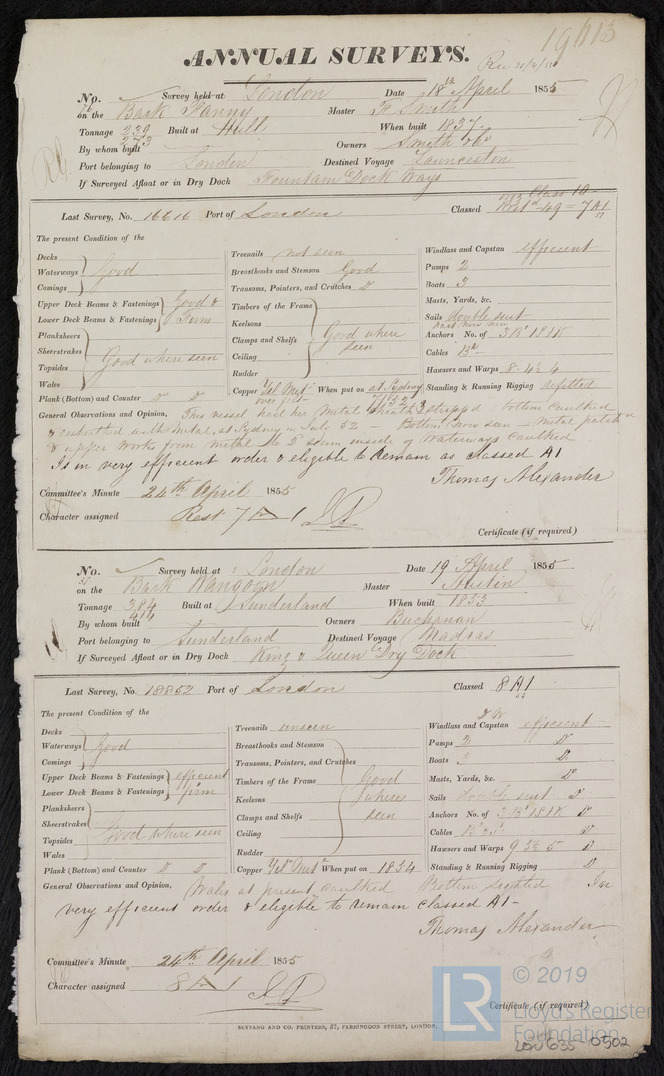 19613
ANNUAL SURVEYS.
No. Survey held at London Date 18th April 1855
on the Bark Fanny Master F Smith
Tonnage 239 273 Built at Hull When built 1837
By whom built Owners Smith & Co
Port belonging to London Destined Voyage Launceston
If Surveyed Afloat or in Dry Dock Fountain Dock Ways
Last Survey, No. 16616 Port of London Classed Restd 49 = 7 A1
The present Condition of the
Decks
Waterways Good
Comings
Upper Deck Beams & Fastenings Good &
Lower Deck Beams & Fastenings Firm
Planksheers
Sheerstrakes
Topsides Good where seen
Wales
Plank (Bottom) and Counter Do Do
Treenails not seen
Breasthooks and Stemson Good
Transoms, Pointers, and Crutches Do
Timbers of the Frame
Keelsons
Clamps and Shelfs Good where
Ceiling seen
Rudder
Copper Yel. Metl over felt When put on at Sydney
Windlass and Capstan efficient
Pumps 2
Boats 3
Masts, Yards, &c.
Sails double suit
Anchors No. of 3 Br 1 S 1 K
Cables
Hawsers and Warps 8. 4½ 4
Standing & Running Rigging refitted
General Observations and Opinion, This vessel had her Metal Sheathg stripped bottom caulked
& resheathed with Metal, at Sydney in July 52 – Bottom now seen – Metal patched
& upper works from Metal to 2nd seam inside of Waterways Caulked
Is in very efficient order & eligible to remain as classed A1
Thomas Alexander
Committee's Minute 24th April 1855
Character assigned Rest 7 A 1
Certificate (if required)
No. Survey held at London Date 19 April 1855
on the Bark Rangoon Master Austin
Tonnage 384 414 Built at Sunderland When built 1853
By whom built Owners Buchanan
Port belonging to Sunderland Destined Voyage Madras
If Surveyed Afloat or in Dry Dock King & Queen Dry Dock
Last Survey, No. 18852 Port of London Classed 8 A1
The present Condition of the
Decks
Waterways Good
Comings
Upper Deck Beams & Fastenings efficient
Lower Deck Beams & Fastenings firm
Planksheers
Sheerstrakes
Topsides Good where seen
Wales
Plank (Bottom) and Counter Do Do
Treenails unseen
Breasthooks and Stemson
Transoms, Pointers, and Crutches
Timbers of the Frame Good
Keelsons where
Clamps and Shelfs seen
Ceiling
Rudder
Copper Yel. Metl When put on 1854
Windlass and Capstan efficient
Pumps 2 Do
Boats 3 Do
Masts, Yards, &c. Do
Sails double suit Do
Anchors No. of 3 Br 1 S 1 K Do
Cables Do
Hawsers and Warps 9 5½ 5 Do
Standing & Running Rigging Do
General Observations and Opinion, Wales at present caulked Bottom sighted Is in
very efficient order & eligible to remain classed A1 –
Thomas Alexander
Committee's Minute 24th April 1855
Character assigned 8 A 1
Certificate (if required)
SEYFANG AND CO. PRINTERS, 57, FARRINGDON STREET, LONDON.
LR © 2019
Lloyd's Register
Foundation
LON635-0502